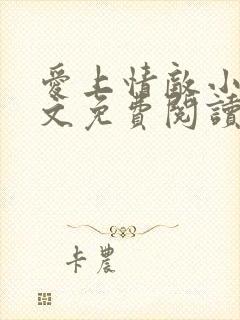 愛上情敵小
文免費閱讀
卡農